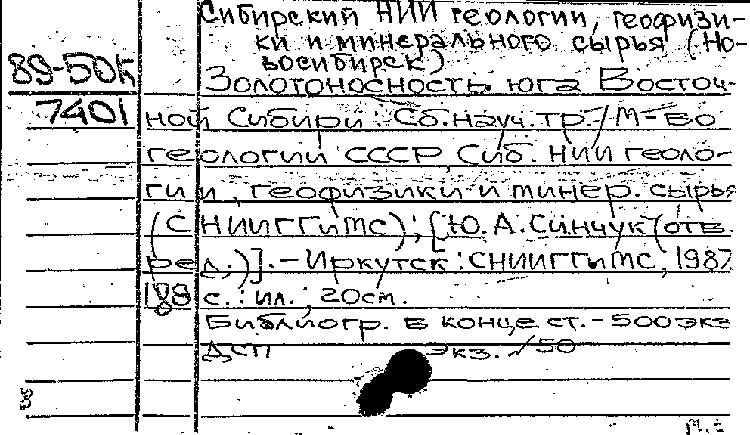 Сибирский НИИ геологии, геофизи-
ки и минерального сырья (Но-
восибирск)
89-50к
7401
Золотоносность юга Восточ-
ной Сибири: Сб. науч. тр. / М-во
геологии СССР, Сиб. НИИ геоло-
гии, геофизики и минер. сырья
(СНИИГГиМС); [Ю. А. Синчук (отв.
ред.)]. - Иркутск: СНИИГГиМС, 1987
188 с.: ил.; 20см.
Библиогр. в конце ст. - 500 экз
ДСП экз. /50